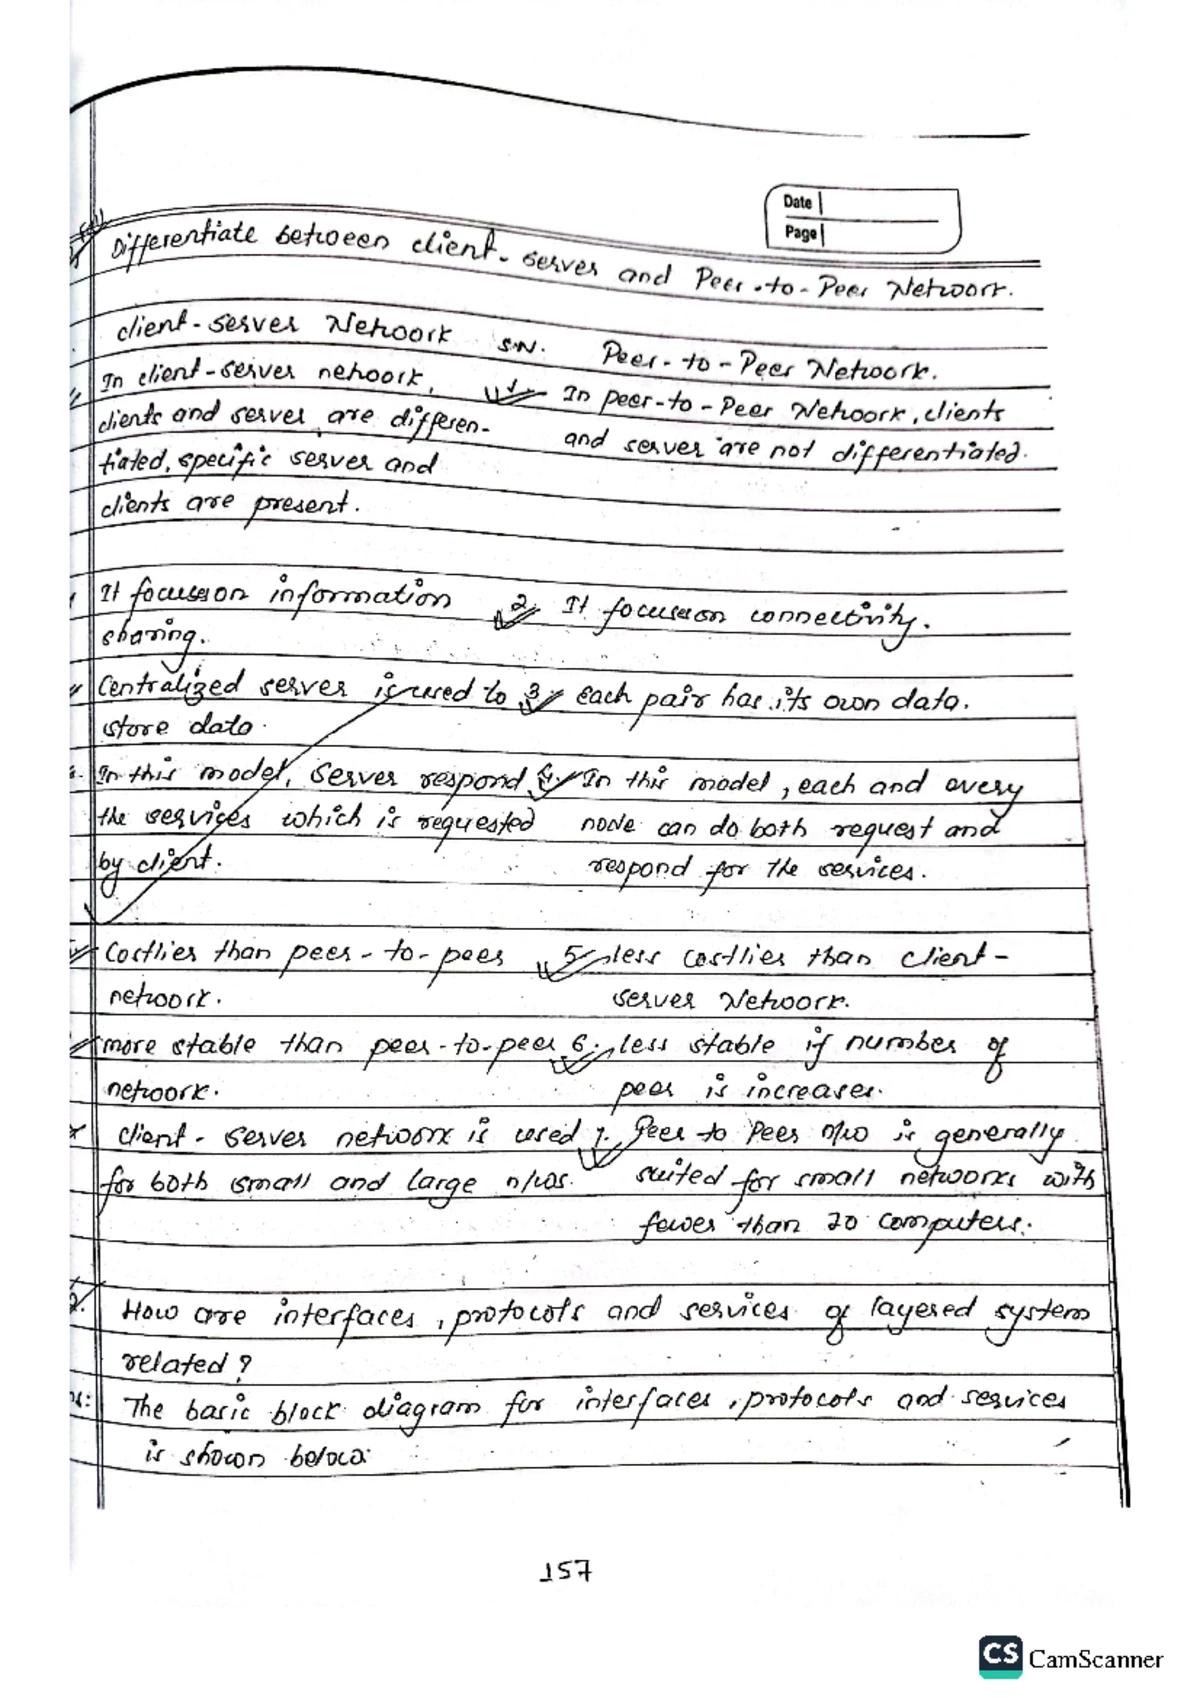 Date
Page
Differentiate between client-server and Peer-to-Peer Network.
client-server Network S.N. Peer-to-Peer Network.
In client-server network, 1. In peer-to-Peer Network, clients
clients and server are differen- and server are not differentiated.
tiated, specific server and
clients are present.
It focuses on information 2. It focuses on connectivity.
sharing.
Centralized server is used to 3. each pair has its own data.
store data.
In this model, server respond 4. In this model, each and every
the services which is requested node can do both request and
by client. respond for the services.
Costlier than peer-to-peer 5. less costlier than client-
network. server Network.
more stable than peer-to-peer 6. less stable if number of
network. peer is increases.
client-server network is used 7. Peer to Peer n/w is generally
for both small and large n/ws. suited for small networks with
fewer than 20 computers.
2. How are interfaces, protocols and services of layered system
related?
The basic block diagram for interfaces, protocols and services
is shown below:
157
CS CamScanner